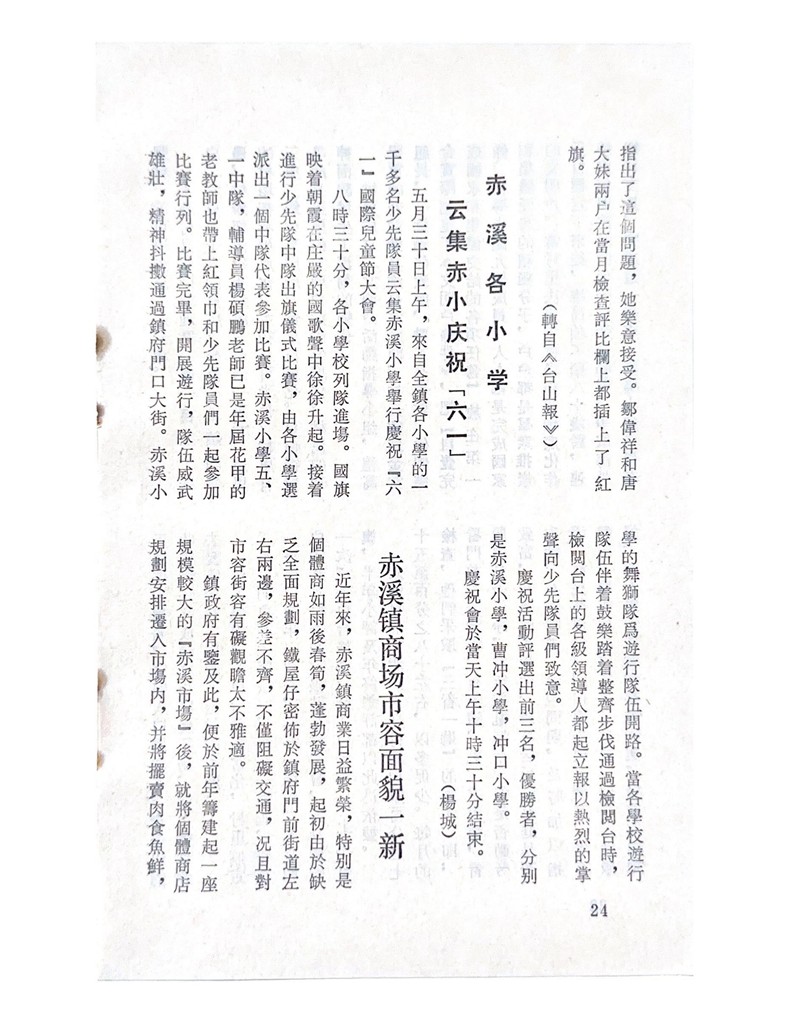 指出了這個問題，她樂意接受。鄒偉祥和唐
大妹兩户在當月檢查評比欄上都插上了紅
旗。
（轉自《台山報》）
赤溪各小学
云集赤小庆祝「六一」
五月三十日上午，來自全鎮各小學的一
千多名少先隊員云集赤溪小學舉行慶祝『六
一』國際兒童節大會。
八時三十分，各小學校列隊進場。國旗
映着朝霞在庄嚴的國歌聲中徐徐升起。接着
進行少先隊中隊出旗儀式比賽，由各小學選
派出一個中隊代表參加比賽。赤溪小學五、
一中隊，輔導員楊碩鵬老師已是年屆花甲的
老教師也帶上紅領巾和少先隊員們一起參加
比賽行列。比賽完畢，開展遊行，隊伍威武
雄壯，精神抖擻通過鎮府門口大街。赤溪小
學的舞獅隊爲遊行隊伍開路。當各學校遊行
隊伍伴着鼓樂踏着整齊步伐通過檢閱台時，
檢閱台上的各級領導人都起立報以熱烈的掌
聲向少先隊員們致意。
慶祝活動評選出前三名，優勝者，分别
是赤溪小學，曹冲小學，冲口小學。
慶祝會於當天上午十時三十分結束。
（楊城）
赤溪镇商场市容面貌一新
近年來，赤溪鎮商業日益繁榮，特別是
個體商如雨後春筍，蓬勃發展，起初由於缺
乏全面規劃，鐵屋仔密佈於鎮府門前街道左
右兩邊，參差不齊，不僅阻礙交通，况且對
市容街容有礙觀瞻太不雅適。
鎮政府有鑒及此，便於前年籌建起一座
規模較大的『赤溪市場』後，就將個體商店
規劃安排遷入市場内，并將擺賣肉食魚鮮，
24